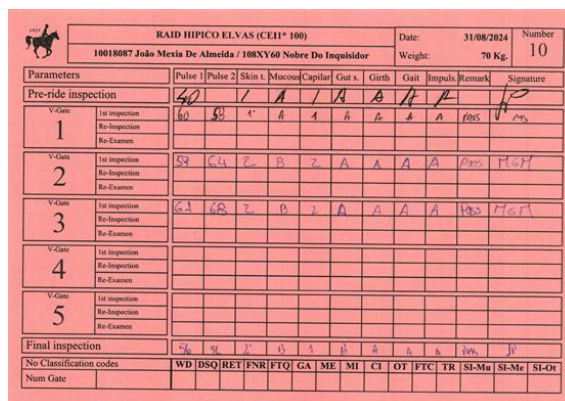 RAID HIPICO ELVAS (CEI1* 100) Date: 31/08/2024 Number
10018087 João Mexia De Almeida / 108XY60 Nobre Do Inquisidor Weight: 70 Kg. 10
Parameters Pulse 1 Pulse 2 Skin t. Mucous Capilar Gut s. Girth Gait Impuls. Remark Signature
Pre-ride inspection 40 1 A 1 A A A A
V-Gate 1 1st inspection 60 58 1 A 1 A A A A Pass MS
Re-Inspection
Re-Examen
V-Gate 2 1st inspection 59 64 2 B 2 A A A A Pass MGM
Re-Inspection
Re-Examen
V-Gate 3 1st inspection 61 68 2 B 2 A A A A Pass MGM
Re-Inspection
Re-Examen
V-Gate 4 1st inspection
Re-Inspection
Re-Examen
V-Gate 5 1st inspection
Re-Inspection
Re-Examen
Final inspection 56 B 1 B A A A
No Classification codes WD DSQ RET FNR FTQ GA ME MI CI OT FTC TR SI-Mu SI-Me SI-Ot
Num Gate